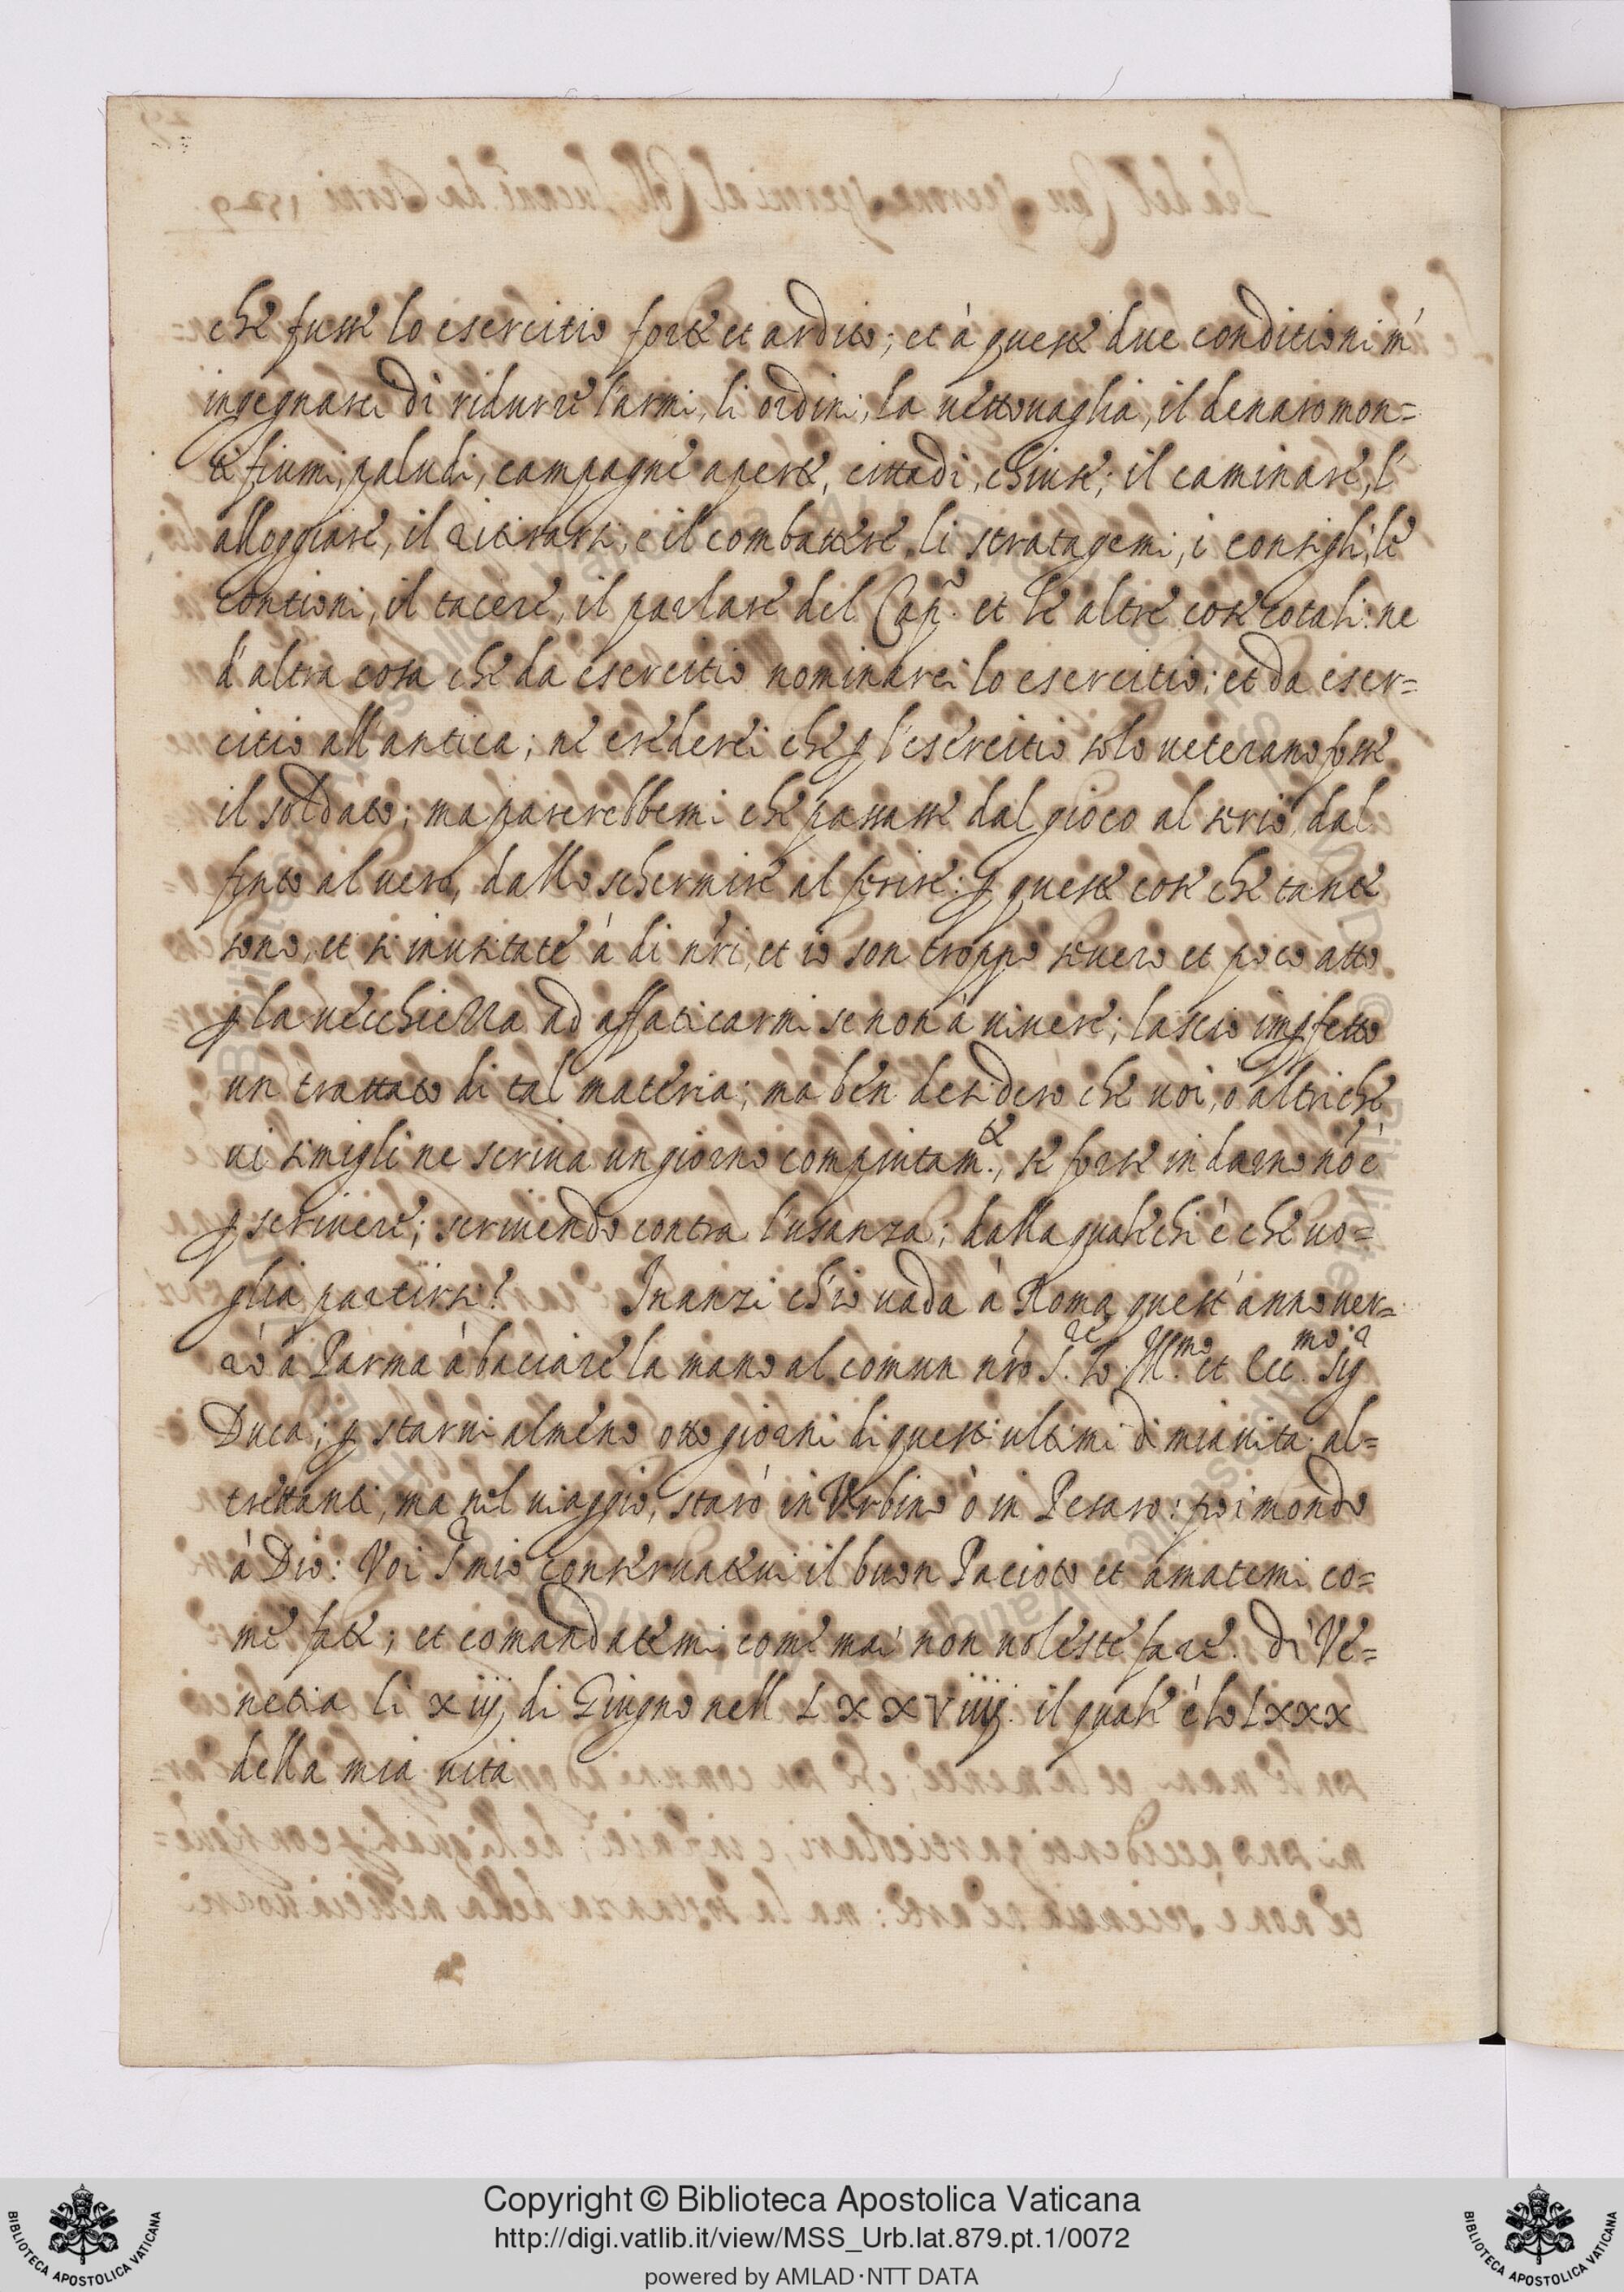 che fusse lo esercitio forte et ardito; et à queste due conditioni m'
ingegnarei di ridurre l'armi, li ordini, la uettouaglia, il denaro mon=
ti fiumi, paludi, campagne aperte, cittadi, chiuse; il caminare, l'
alloggiare, il ritirarsi, e il combattere, li stratagemi, i consigli, le
contioni, il tacere, il parlare del Capñ. et le altre cose cotali: ne
d'altra cosa che da esercitio nominarei lo esercitio; et da eser=
citio all'antica; ne crederei che p l'esercitio solo ueterano fosse
il soldato; ma parerebbemi che passasse dal gioco al serio, dal
finto al uero, dallo schermire al ferire. p queste cose che tante
sono, et si inusitate à di nr̃i, et io son troppo seuero et poco atto
p la uecchiezza ad affaticarmi se non à uiuere; lascio impfetto
un trattato di tal materia; ma ben desidero che uoi, ò altri che
ui simigli ne scriua un giorno compiutam.te, se forse indarno nõ è
p scriuere; scriuendo contra l'usanza; dalla quale chi è che uo=
glia partirsi? Inanzi ch'io uada à Roma quest'anno uer=
rò à Parma à baciare la mano al comun nr̃o S.re lo Ill.mo et Ecc.mo Sig.r
Duca; p starui almeno otto giorni di questi ultimi di mia uita: al=
trettanti, ma nel uiaggio, starò in Vrbino ò in Pesaro: poi mondo
à Dio: Voi S.r mio conseruateui il buon Pacioto et amatemi co=
me fate; et comandatemi, come mai non uoleste fare. Di Ve=
netia li xiij di Giugno nell LXXVIIIJ. il quale è lo LXXX
della mia uita
Copyright © Biblioteca Apostolica Vaticana
http://digi.vatlib.it/view/MSS_Urb.lat.879.pt.1/0072
powered by AMLAD·NTT DATA
BIBLIOTECA APOSTOLICA VATICANA
BIBLIOTECA APOSTOLICA VATICANA